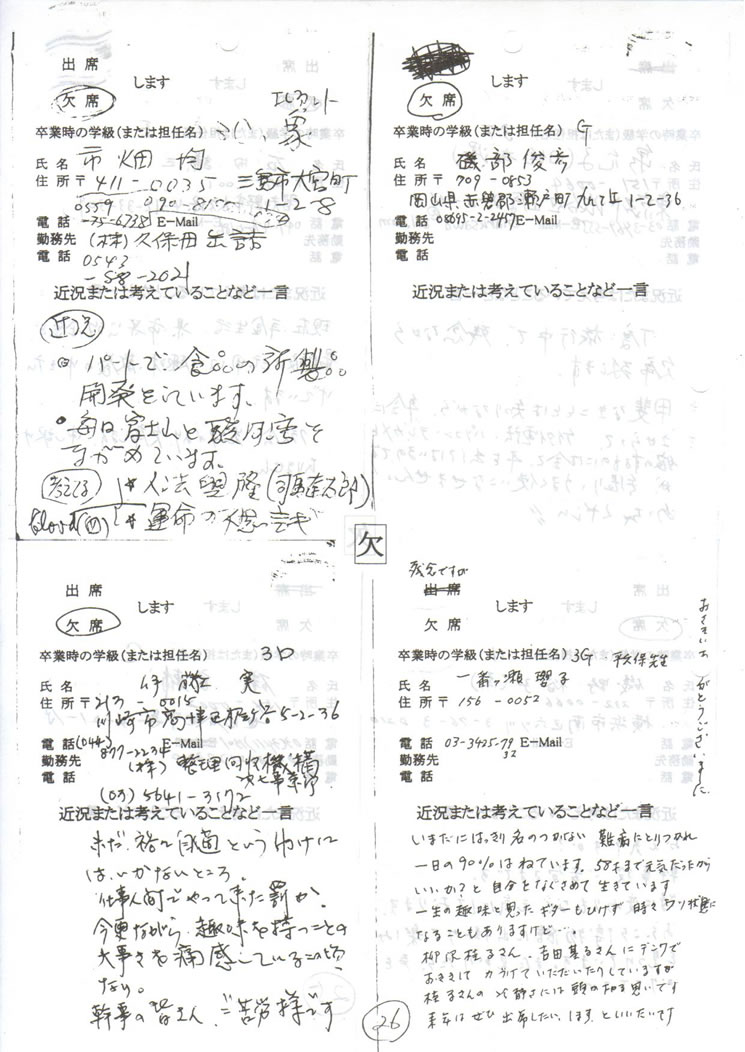 出 席
します
欠 席
卒業時の学級(または担任名)
氏 名 市畑 均
住 所 〒 411-0035 三島市大宮町
1-2-8
0559
電 話 -75-6738 E-Mail
勤務先 (株)久保田缶詰
電 話 0543
-58-2021
近況または考えていることなど一言
近況
パートで食品の新製品
開発をしています。
毎日富士山と駿河湾を
ながめています。
考えてる
(司馬遼太郎)
運命が
します
欠 席
卒業時の学級(または担任名) G
氏 名 磯部俊彦
住 所 〒 709-0853
岡山県赤磐郡瀬戸町 1-2-36
電 話 08695-2-2457 E-Mail
勤務先
電 話
近況または考えていることなど一言
欠
出 席
します
欠 席
卒業時の学級(または担任名) 3D
氏 名 伊藤 実
住 所 〒 213-0015
川崎市高津区梶ヶ谷5-2-36
電 話 (044) E-Mail
877-2234
勤務先 (株)整理回収機構
電 話
(03) 5641-3172
近況または考えていることなど一言
まだ裕々自適というわけに
はいかないところ。
仕事人間でやって来た罰か、
今更ながら、趣味を持つことの
大事さを痛感しているこの頃
なり。
幹事の皆さん、ご苦労様です
残念ですが
出 席
します
欠 席
卒業時の学級(または担任名) 3G
氏 名 一番ヶ瀬
住 所 〒 156-0052
電 話 03-3425-7932 E-Mail
勤務先
電 話
おさそいありがとうございました
近況または考えていることなど一言
いまだにはっきり名のつかない難病にとりつかれ
一日の90%はねています。58才まで元気だったから
いいか?と自分をなぐさめて生きています
一生の趣味と見たギターもひけず 時々ウツ状態に
なることもありますけど…。
柳沢桂子さん、吉田基子さんにデンワで
おききして力づけていただいたりしていますが
桂子さんの冷静さには頭の下る思いです
来年はぜひ出席したい、します、といいたいです
26